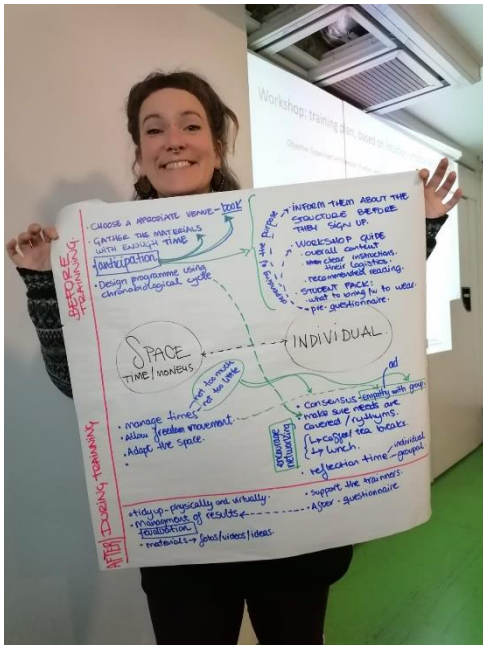 Workshop: training plan, based on
BEFORE TRAINNING.
• CHOOSE A APROPIATE VENUE - book
• GATHER THE MATERIALS
WITH ENOUGH TIME
{anticipation}
• Design programme using
chronobiological cycle
depending of the purpose
INFORM THEM ABOUT THE
STRUCTURE BEFORE
THEY SIGN UP.
WORKSHOP GUIDE
• overall content
clear instructions.
their logistics.
• recommended reading.
STUDENT PACK:
what to bring to wear.
pre-questionnaire.
SPACE
TIME/MONEYS
INDIVIDUAL.
not too much
not too little
DURING TRAINNING
• manage times
• Allow freedom movement
• Adapt the space.
•
encourage
networking
• Consensus - empathy with group.
• make sure needs are
covered / rythyms.
↳ coffee/tea breaks.
↳ lunch.
reflection time
individual
groupal
AFTER
• tidy up - physically and virtually.
• managment of results
evaluation
• materials → fotos/videos/ideas.
• support the trainners.
• After-questionnaire